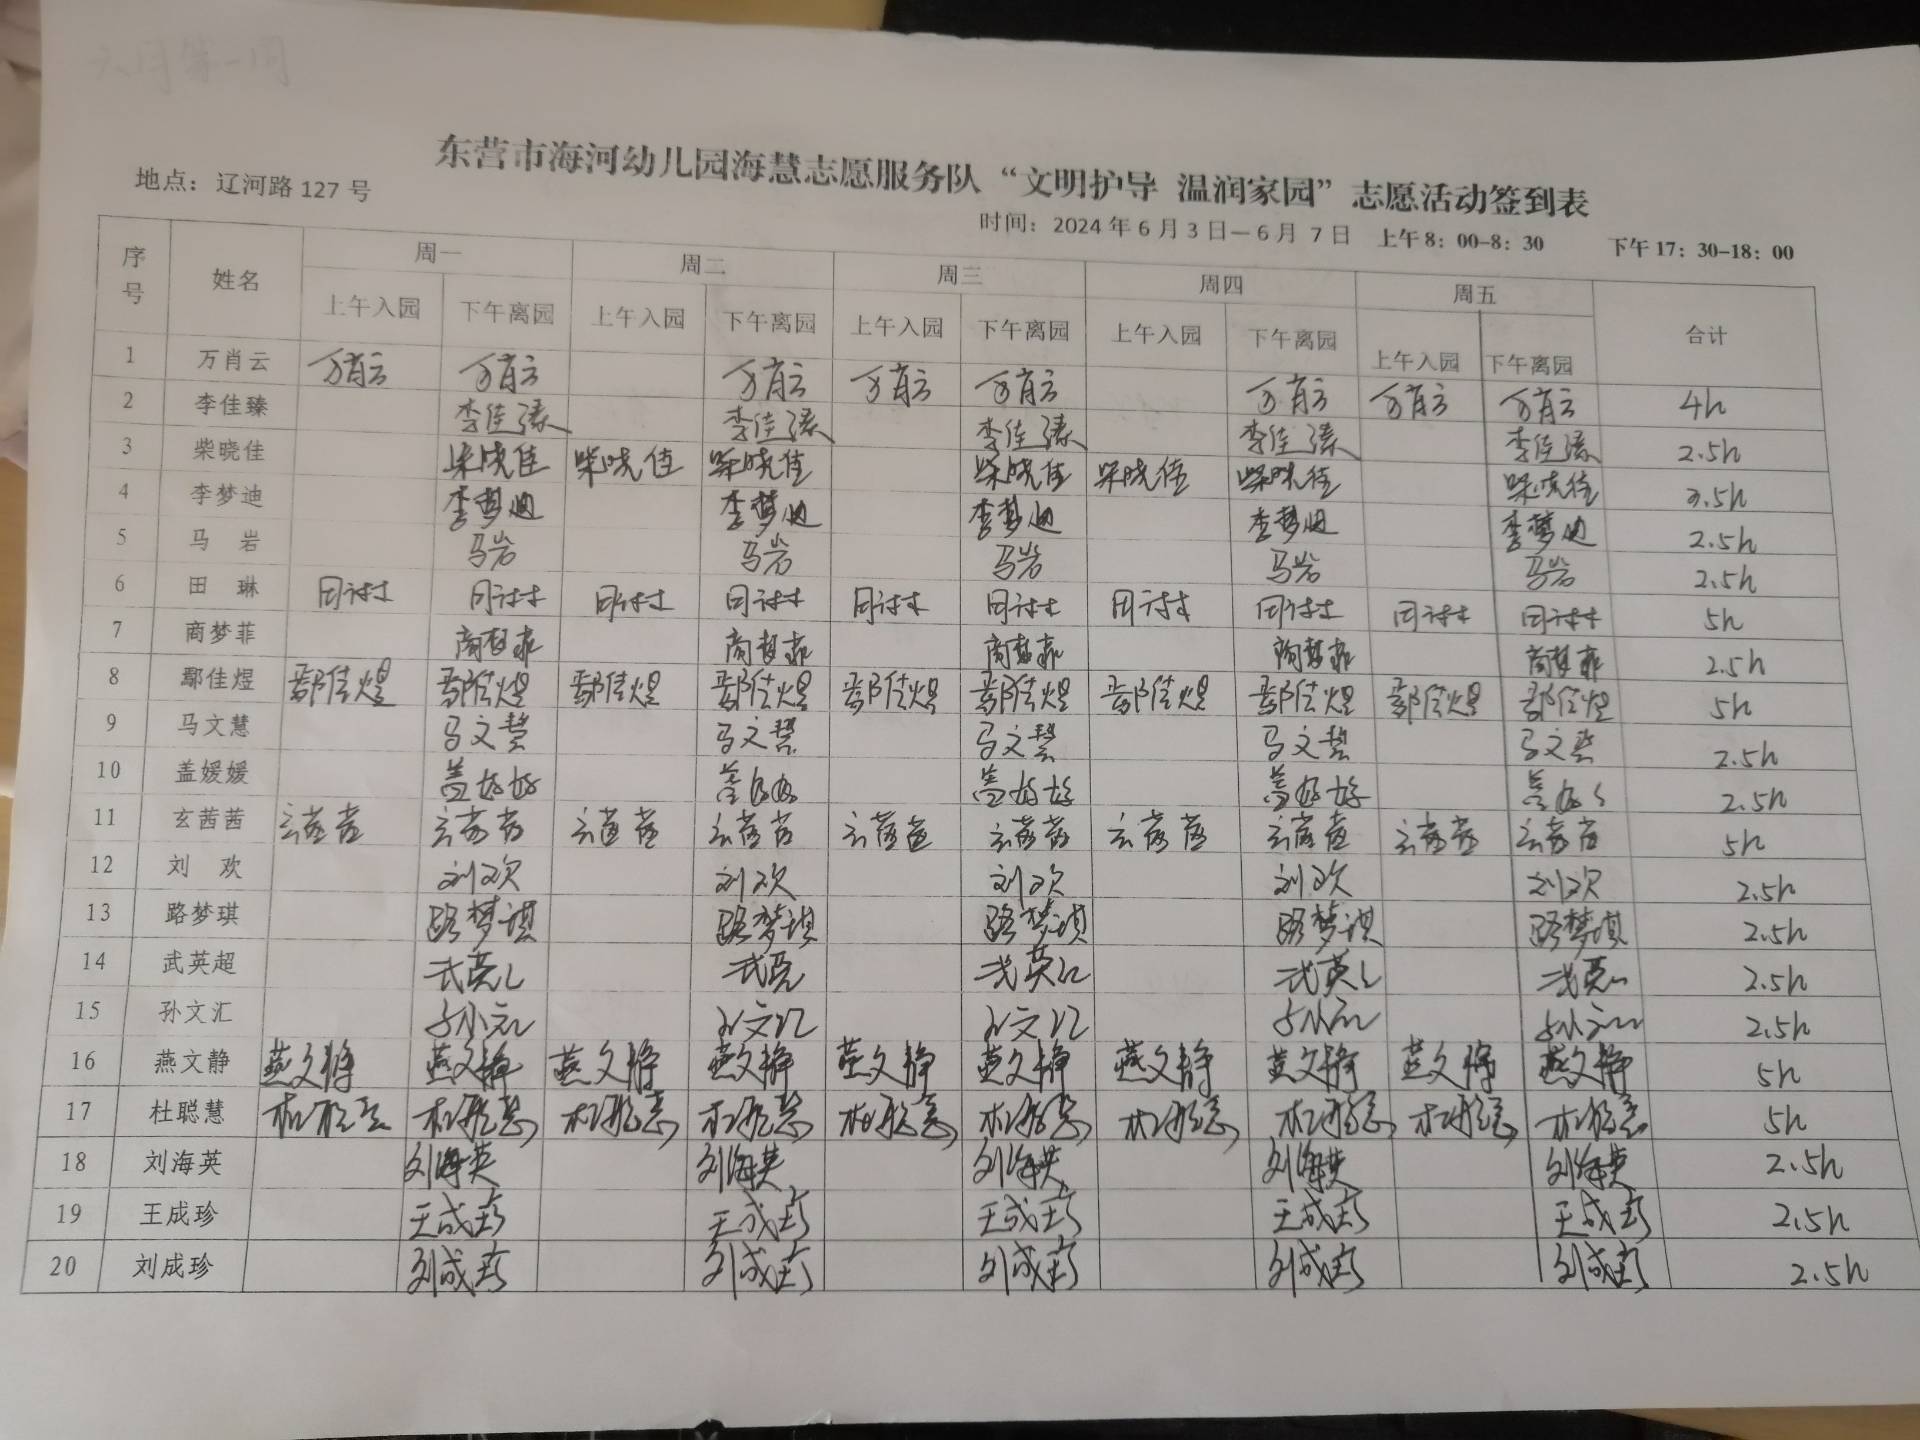 六月第一周
东营市海河幼儿园海慧志愿服务队“文明护导 温润家园”志愿活动签到表
地点：辽河路 127 号
时间：2024 年 6 月 3 日—6 月 7 日 上午 8：00-8：30 下午 17：30-18：00
序号 姓名 周一 周二 周三 周四 周五 合计
上午入园 下午离园 上午入园 下午离园 上午入园 下午离园 上午入园 下午离园 上午入园 下午离园
1 万肖云 万肖云 万肖云 万肖云 万肖云 万肖云 万肖云 万肖云 万肖云 4h
2 李佳臻 李佳臻 李佳臻 李佳臻 李佳臻 李佳臻 2.5h
3 柴晓佳 柴晓佳 柴晓佳 柴晓佳 柴晓佳 柴晓佳 柴晓佳 柴晓佳 3.5h
4 李梦迪 李梦迪 李梦迪 李梦迪 李梦迪 李梦迪 2.5h
5 马 岩 马岩 马岩 马岩 马岩 马岩 2.5h
6 田 琳 田琳 田琳 田琳 田琳 田琳 田琳 田琳 田琳 田琳 田琳 5h
7 商梦菲 商梦菲 商梦菲 商梦菲 商梦菲 商梦菲 2.5h
8 鄢佳煜 鄢佳煜 鄢佳煜 鄢佳煜 鄢佳煜 鄢佳煜 鄢佳煜 鄢佳煜 鄢佳煜 鄢佳煜 鄢佳煜 5h
9 马文慧 马文慧 马文慧 马文慧 马文慧 马文慧 2.5h
10 盖媛媛 盖媛媛 盖媛媛 盖媛媛 盖媛媛 盖媛媛 2.5h
11 玄茜茜 玄茜茜 玄茜茜 玄茜茜 玄茜茜 玄茜茜 玄茜茜 玄茜茜 玄茜茜 玄茜茜 玄茜茜 5h
12 刘 欢 刘欢 刘欢 刘欢 刘欢 刘欢 2.5h
13 路梦琪 路梦琪 路梦琪 路梦琪 路梦琪 路梦琪 2.5h
14 武英超 武英超 武英超 武英超 武英超 武英超 2.5h
15 孙文汇 孙文汇 孙文汇 孙文汇 孙文汇 孙文汇 2.5h
16 燕文静 燕文静 燕文静 燕文静 燕文静 燕文静 燕文静 燕文静 燕文静 燕文静 燕文静 5h
17 杜聪慧 杜聪慧 杜聪慧 杜聪慧 杜聪慧 杜聪慧 杜聪慧 杜聪慧 杜聪慧 杜聪慧 杜聪慧 5h
18 刘海英 刘海英 刘海英 刘海英 刘海英 刘海英 2.5h
19 王成珍 王成珍 王成珍 王成珍 王成珍 王成珍 2.5h
20 刘成珍 刘成珍 刘成珍 刘成珍 刘成珍 刘成珍 2.5h